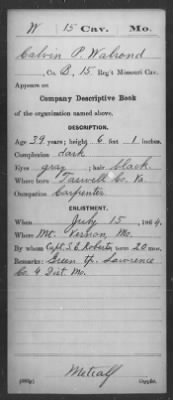 W 15 Cav. Mo.
Calvin P. Walrond
, Co. B, 15 Reg't Missouri Cav.
Appears on
Company Descriptive Book
of the organization named above.
DESCRIPTION.
Age 39 years; height 6 feet 1 inches.
Complexion dark
Eyes gray; hair black
Where born Taswell Co. Va
Occupation Carpenter
ENLISTMENT.
When July 15, 1864.
Where Mt. Vernon, Mo.
By whom Capt. S. E. Roberts, term 20 mos.
Remarks: Green tp. Lawrence
Co. 4 Dist. Mo.
Metcalf
Copyist.